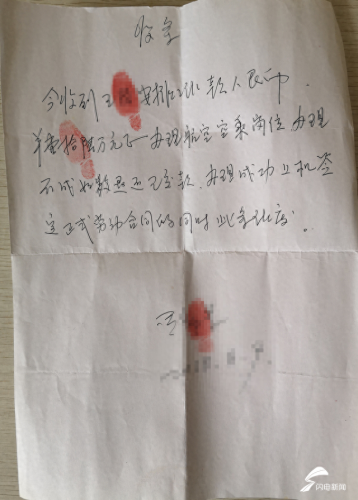 收条
今收到王 安排工作款人民币
拾 万元正 办理航空空乘岗位 办理
不成如数退还已交款 办理成功上机签
定正式劳动合同的同时 此条作废
闪电新闻